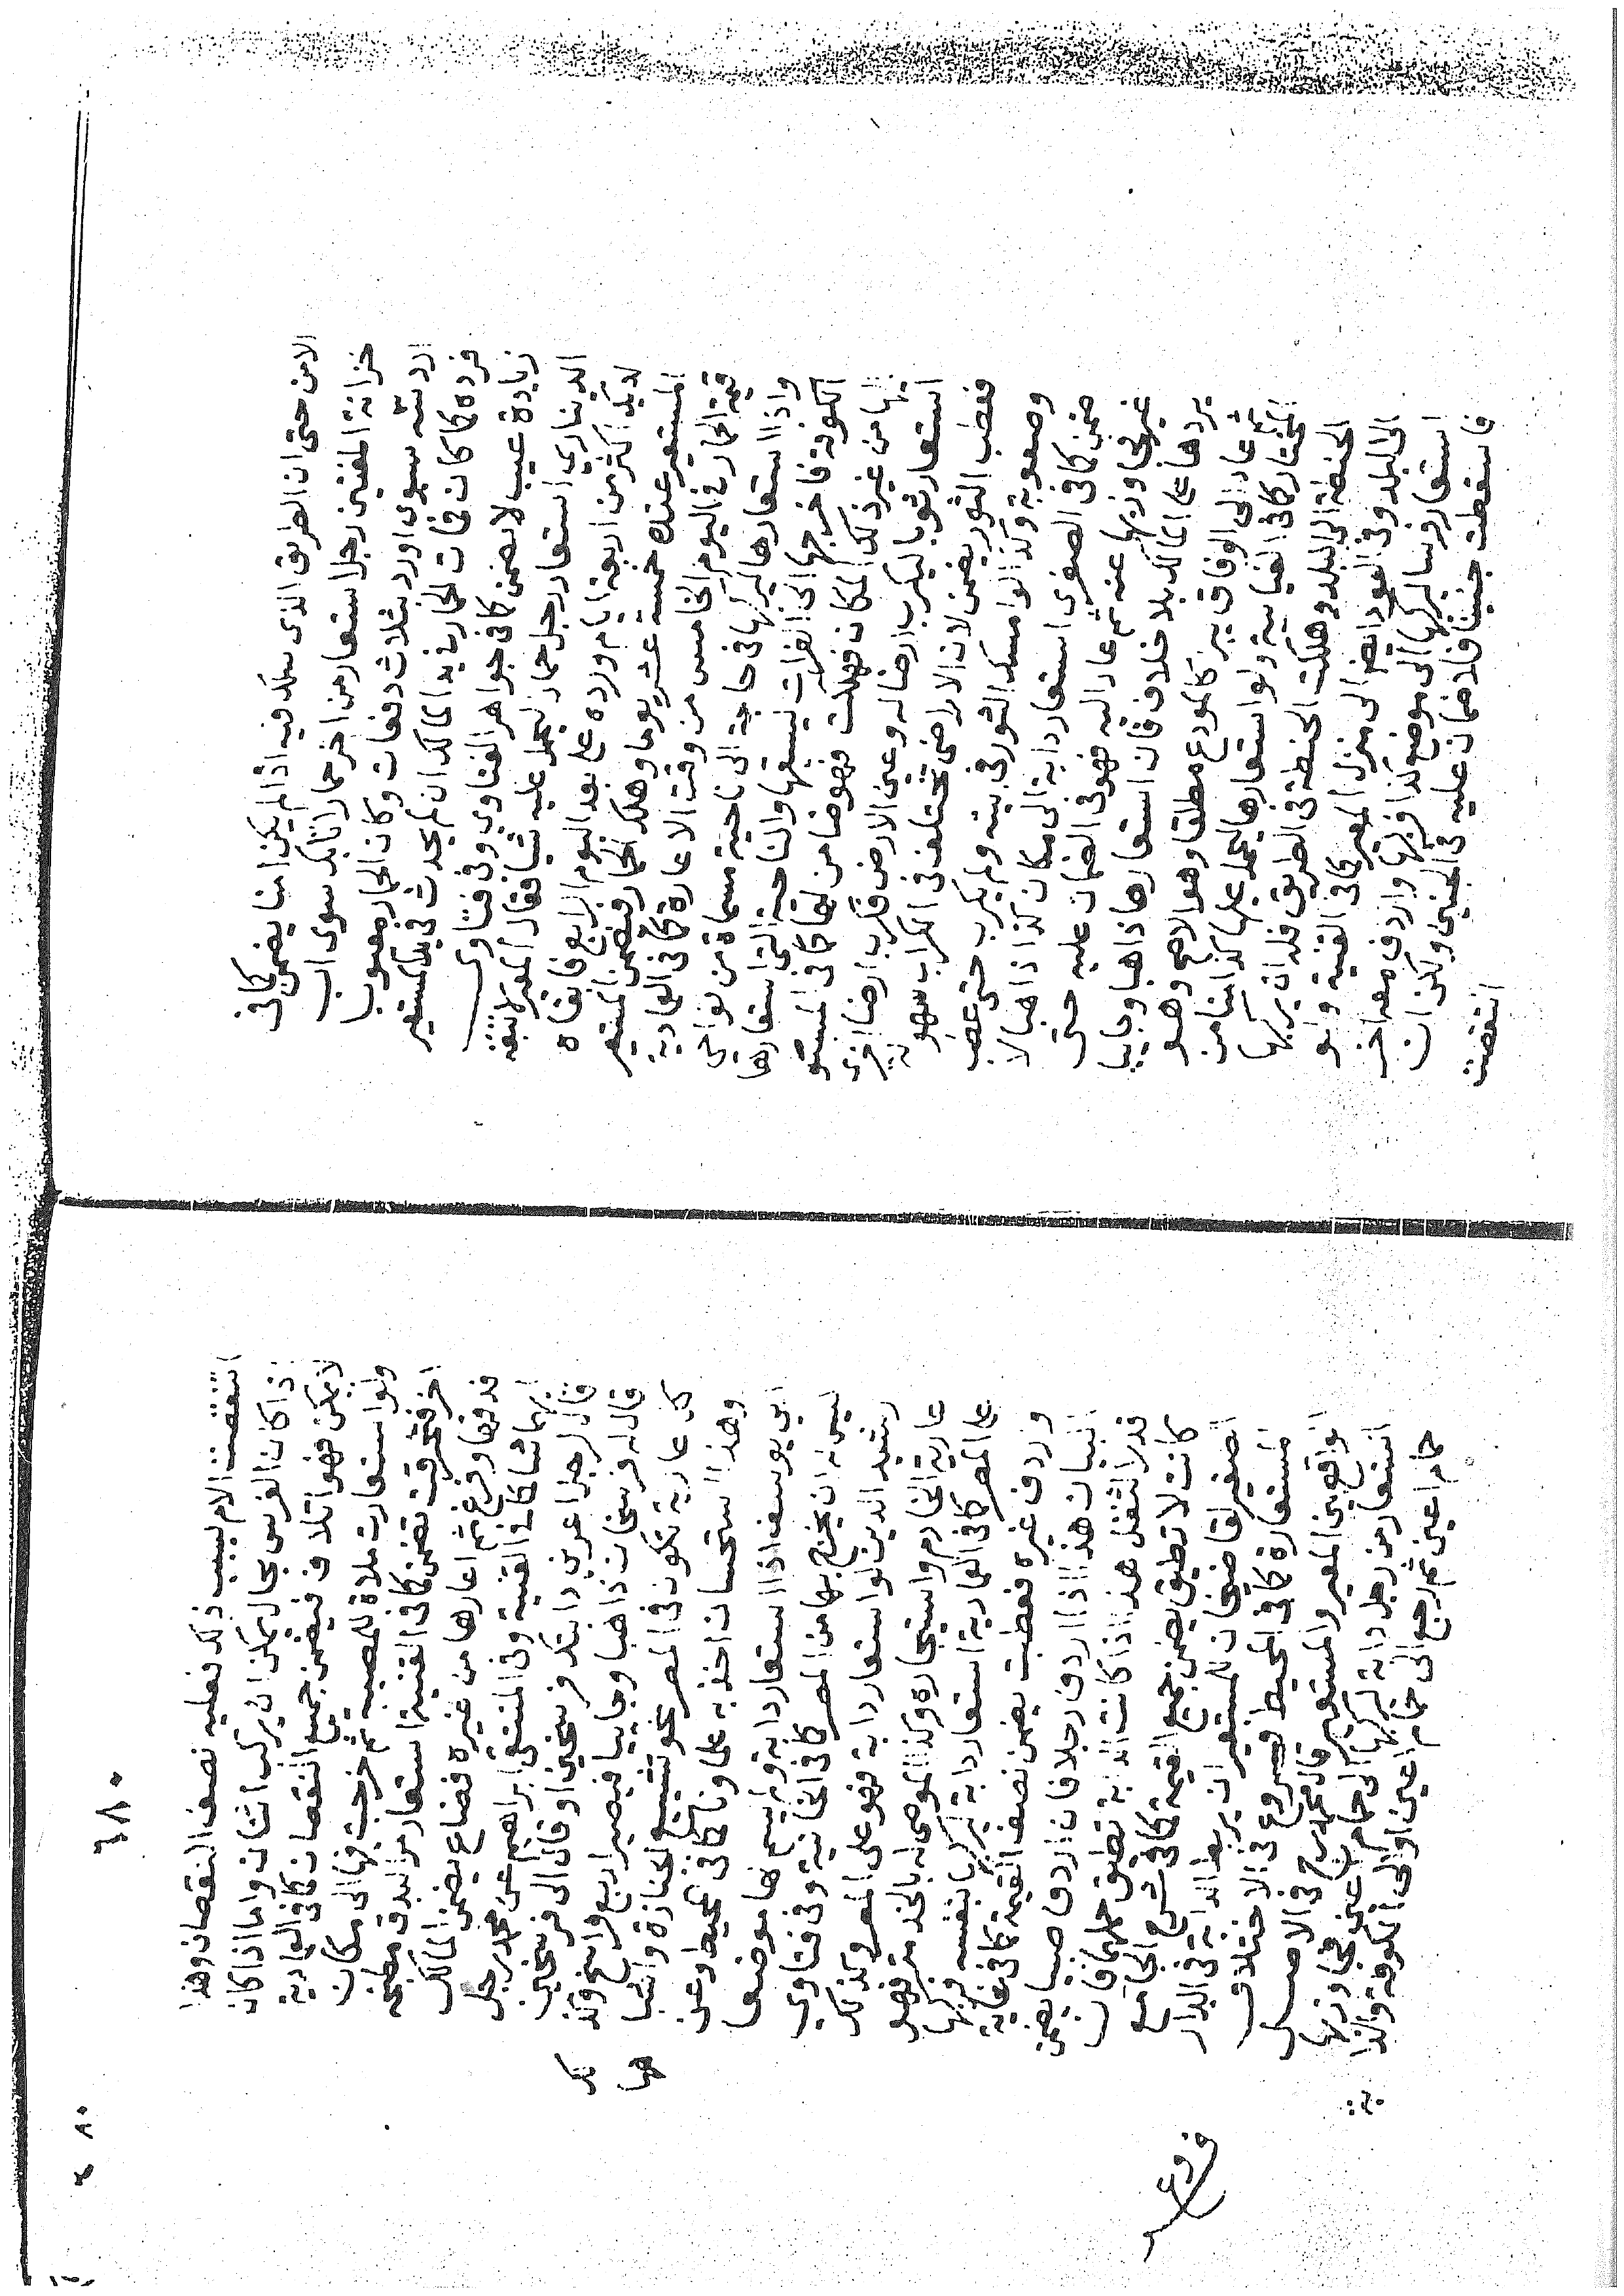 الامن حتى ان الطريق الذى سلكه فيه اذا لم يكن امنا يضمن كما فى
خزانة المفتين رجل استعار من اخر حمارا
ارد سنه سوى اورد ثلاث دفعات وكان الحمار معيوب
فرده كما كان فمات الحمار فى يد المالك ان لم يحدث فى يد المستعير
زيادة عيب لا يضمن كما فى جواهر الفتاوى وفى فتاوى
الدينارى استعار رجل حمار ليحمل عليه شيئا فقال المعير لا تبقه
لديك اكثر من اربعة ايام ورده على بعد اليوم الرابع فابقاه
المستعير عنده خمسة عشر يوما وهلك الحمار فيضمن المستعير
قيمة الحمار فى اليوم الخامس من وقت الاعارة كما فى العمادية
واذا استعارها ليركبها فى حاجة الى ناحية مسماة من نواحى
الكوفة فاخرجها الى الفرات ليسقيها والناحية التى استعارها
اليها من غير ذلك المكان فهلكت فهو ضامن لها كما فى المبسوط
استعار ثورا ليكرب ارضا له وعين الارض فكرب ارضا اخرى
فعطب الثور يضمن لان الاراضى تختلف فى الكراب سهولة
وصعوبة وكذا لو امسك الثور فى بيته ولم يكرب حتى عطب
ضمن كما فى الصغرى استعار دابة الى مكان كذا ذاهبا لا
غير فجاوز بها عنه ثم عاد اليه فهو فى الضمان عليه حتى
يردها على المالك بلا خلاف فان استعارها ذاهبا وجايبا
ثم عاد الى الوفاق يبرء كالمودع مطلقا وهو الاصح وهو
المختار كما فى الغياثية ولو استعارها ليحمل عليها كذا منا من
الحنطة الى البلد وهلكت الحنطة فى الطريق فله ان يركبها
الى البلد وفى العود ايضا الى منزل المعير كما فى القنية ولو
استعار فرسا ليركبها الى موضع كذا فركبها واردف معه اخر
فاسقطت جنينا فلا ضمان عليه فى الجنين ولكن ان
انتقصت
٤٨٠
٤٨٠
انتقصت الام بسبب ذلك فعليه نصف النقصان وهذا
اذا كان الفرس بحال يمكن ان يركب اثنان واما اذا كان
لا يمكن فهو اتلاف فيضمن جميع النقصان كما فى العمادية
ولو استعارت ملاة للمصيبة ثم خرجت فيها الى مكان
اخر فتخرقت تضمن كما فى القنية استعار مر البدق مطبخه
فدقها وفرغ ثم اعارها من غيره فضاع يضمن المالك
ايهما شاء كما فى القنية وفى المنتقى ابراهيم عن محمد رجل
قال لرجل اعرنى دابتك فرسخين او قال الى فرسخين
قال له فرسخان ذاهبا وجايبا فيصير اربع فراسخ وكذلك
كل عارية تكون فى المصر نحو تشييع الجنازة واشباهها
وهذا استحسان اخذ به علماونا كما فى المحيط وعن
ابى يوسف اذا استعار دابة ولم يسم لها موضعا
ليس له ان يخرج بها من المصر كما فى الخانية وفى فتاوى
رشيد الدين لو استعار دابة فهو على المصر وكذلك
عارية الخادم واستيجاره وكذا الموصى له بالخدمة فهو
على المصر كما فى العمادية استعار دابة ليركبها بنفسه فركبها
وردف غيره فعطبت يضمن نصف القيمة كما فى غاية
البيان هذا اذا اردف رجلا فان اردف صبيا يضمن
قدر الثقل هذا اذا كانت الدابة تطيق حملهما فان
كانت لا تطيق يضمن جميع القيمة كما فى شرح الجامع
الصغير لقاضيخان للمستعير ان يربط الدابة فى الدار
المستعارة كما فى المحيط فروع فى الاختلاف
الواقع بين المعير والمستعير قال محمد رح فى الاصل
استعار من رجل دابة ليركبها الى حمام اعين فجاوز بها
حمام اعين ثم رجع الى حمام اعين او الى الكوفة والدابة
فروع